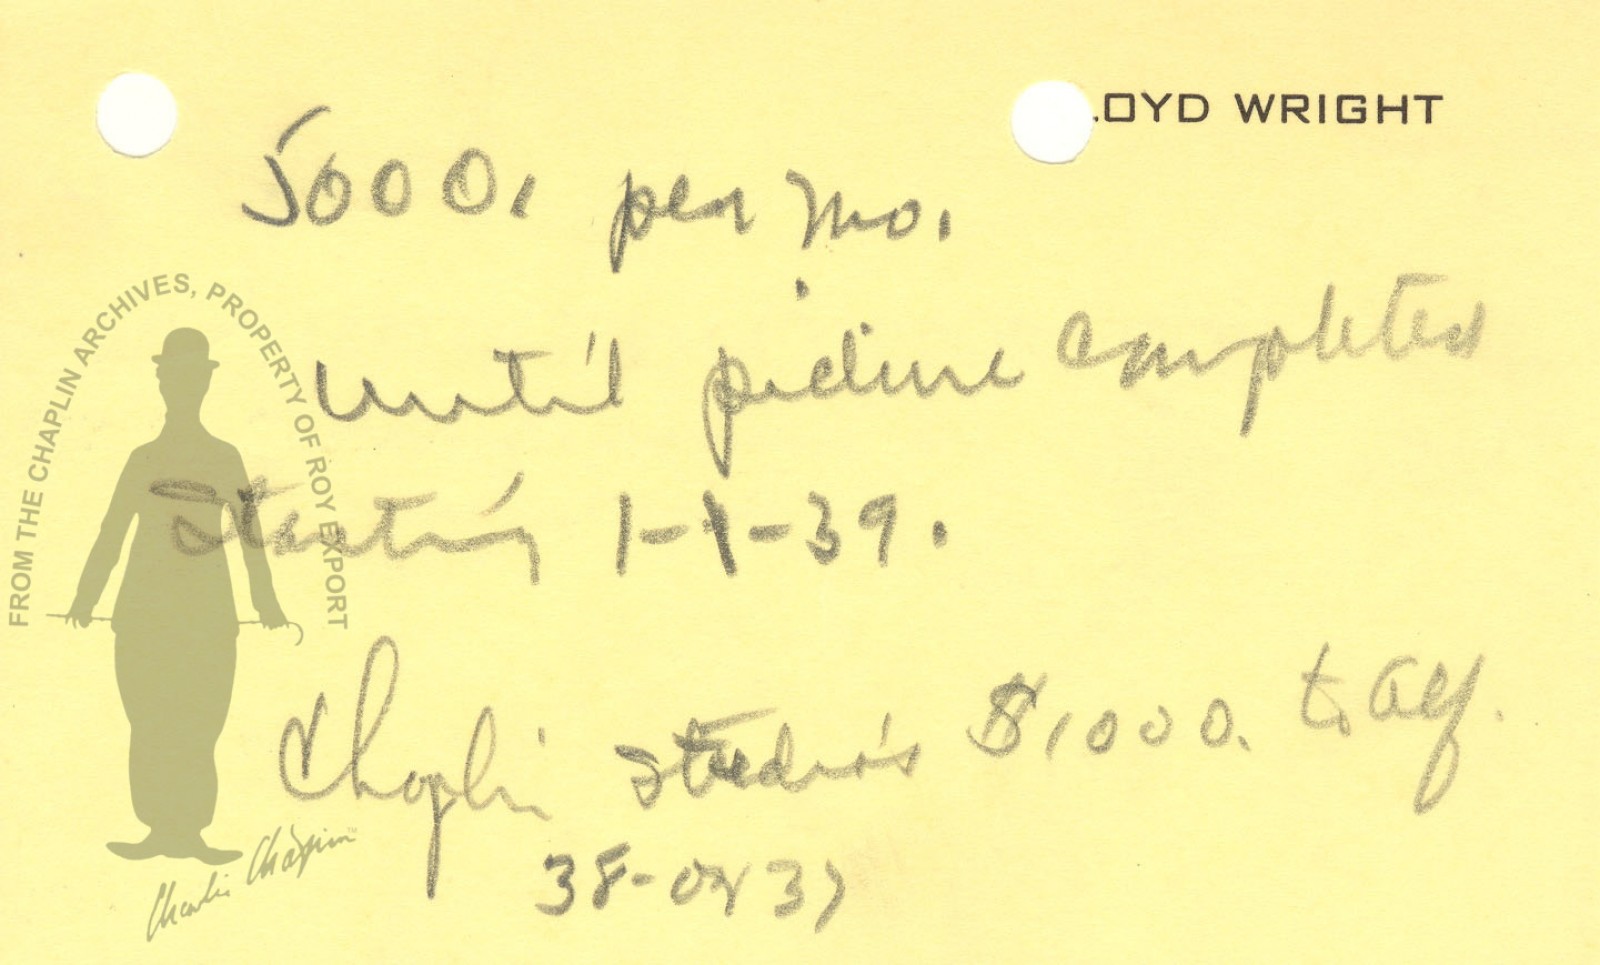 LOYD WRIGHT
5000. per mo.
until picture completed
starting 1-1-39.
Chaplin studios $1000. to Alf.
38-or 37
FROM THE CHAPLIN ARCHIVES, PROPERTY OF ROY EXPORT
Charlie Chaplin™